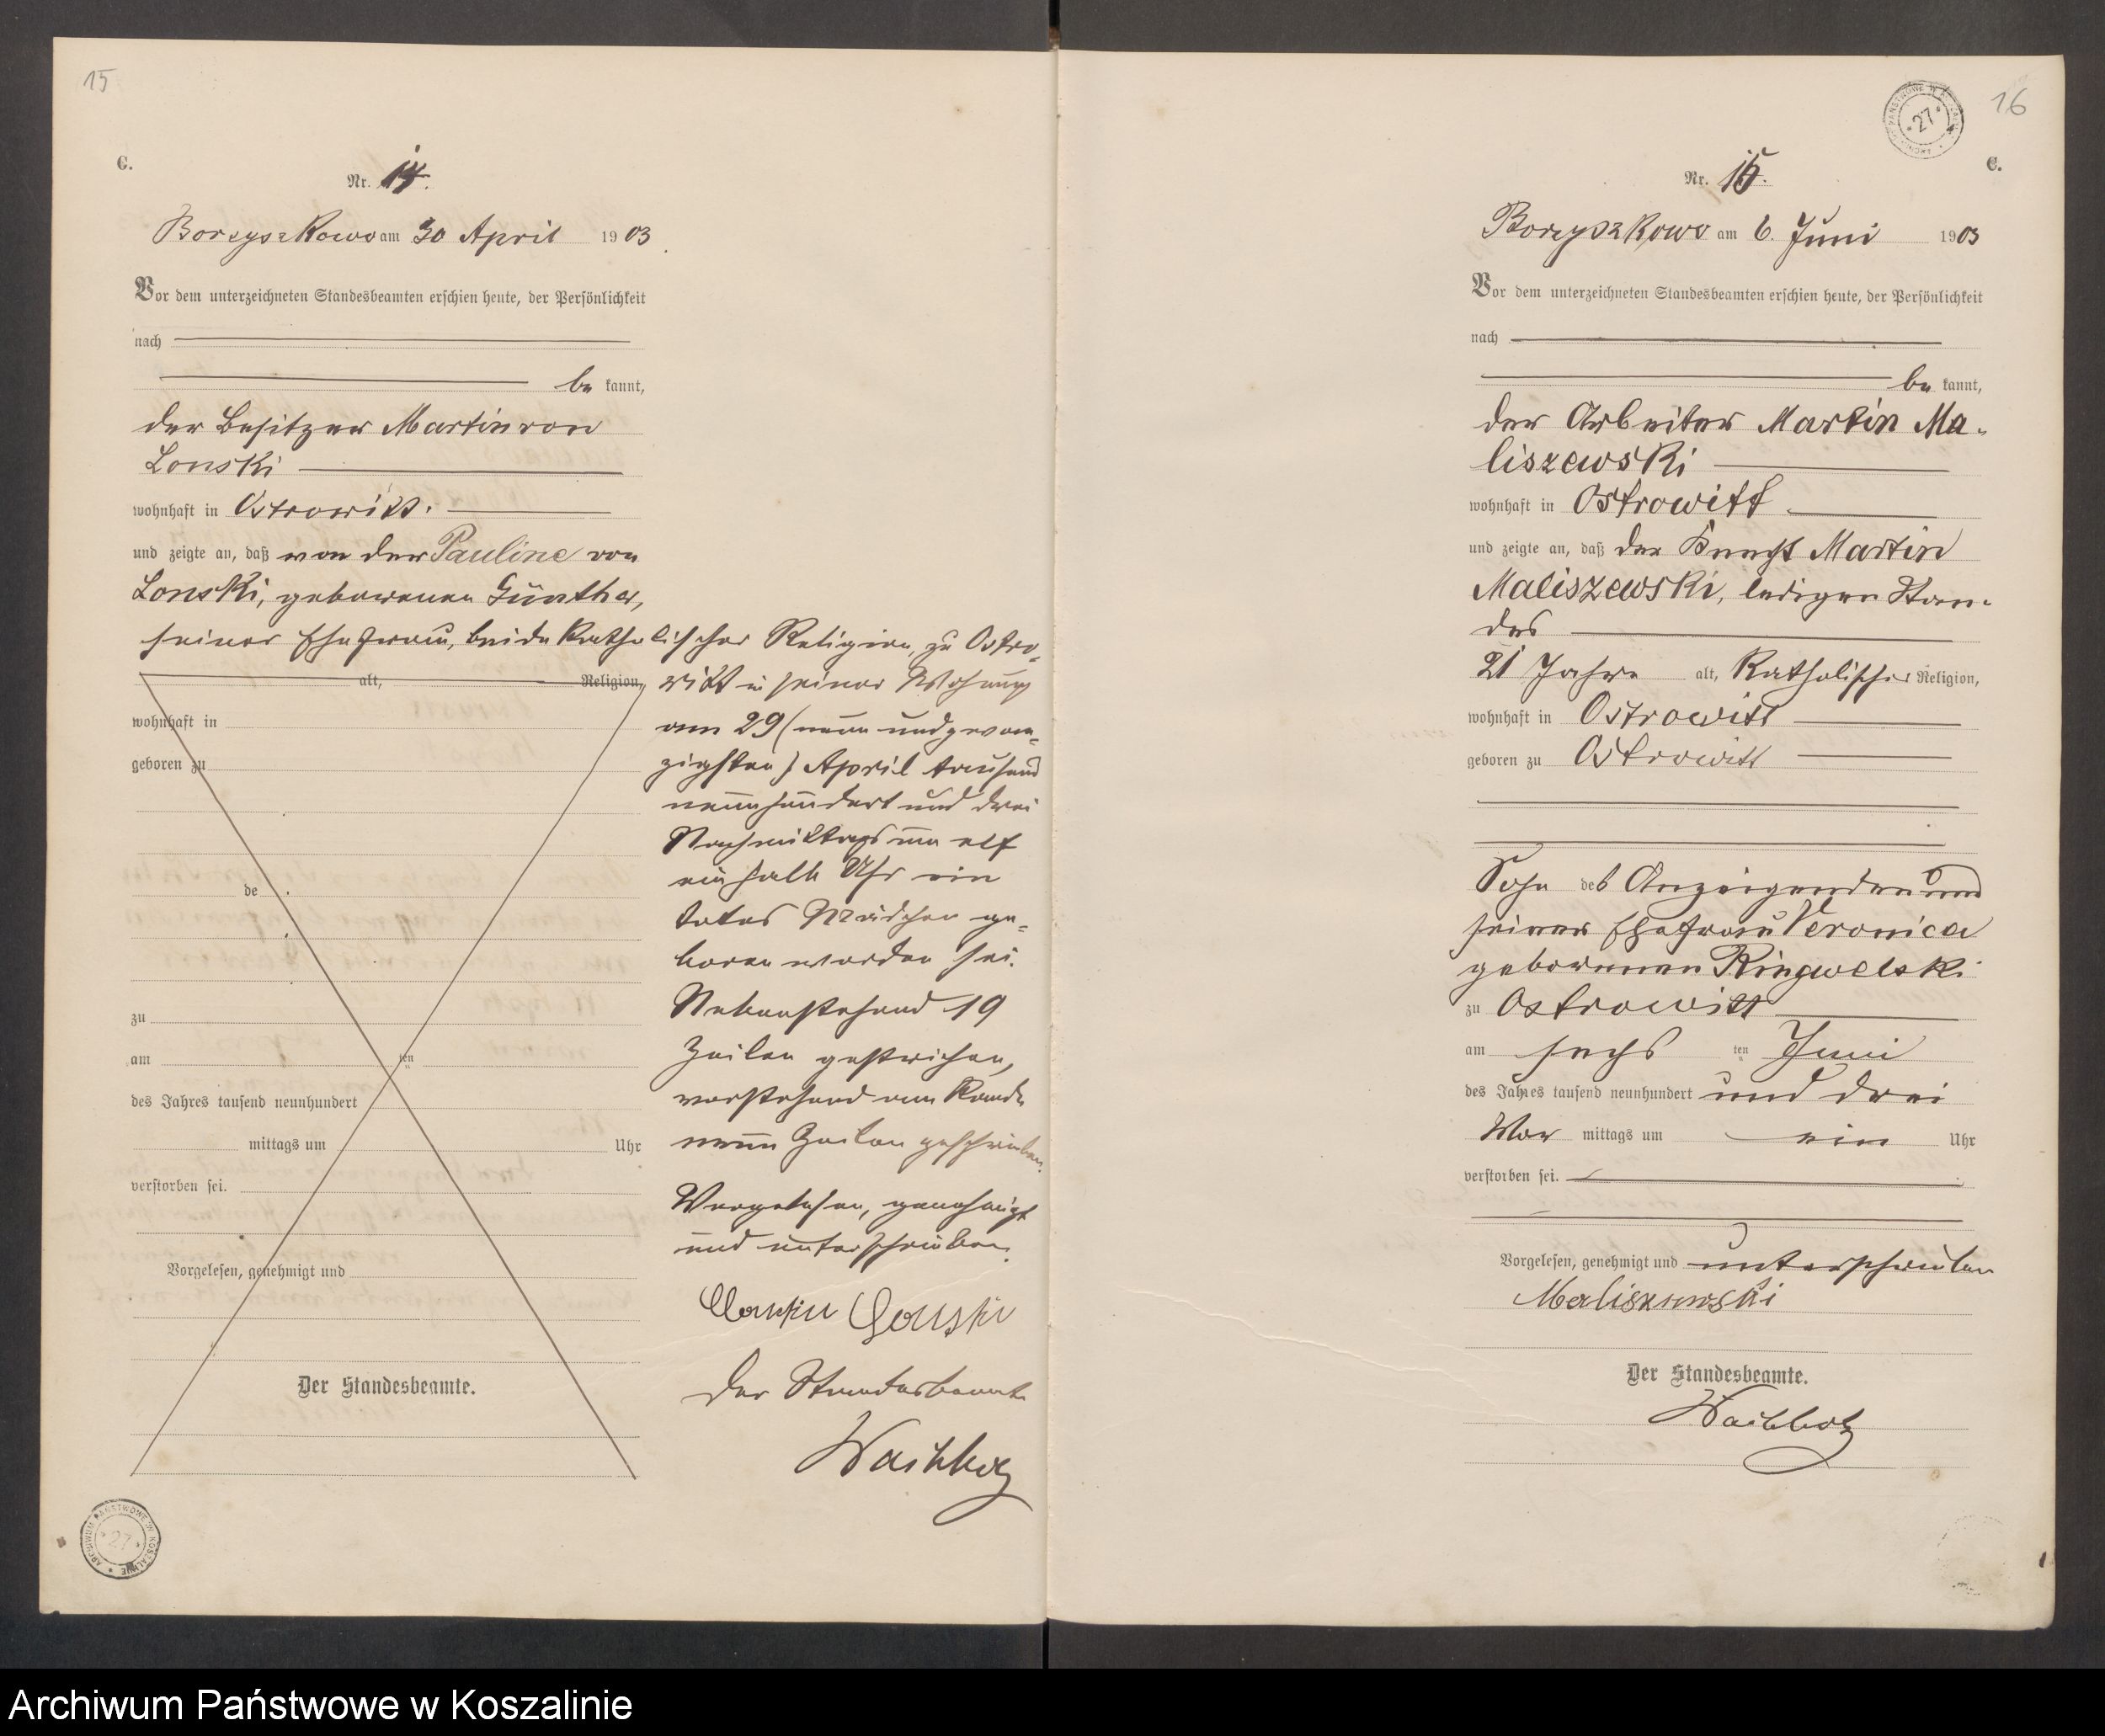 15
C.
Nr. 14.
Borzyszkowo am 30 April 1903
Vor dem unterzeichneten Standesbeamten erschien heute, der Persönlichkeit
nach
be kannt,
der Besitzer Martin von
Lonski
wohnhaft in Ostrowitt.
und zeigte an, daß von der Pauline von
Lonski, geborenen Günther,
seiner Ehefrau, beide katholischer Religion, zu Ostro-
alt, Religion, witt in seiner Wohnung
wohnhaft in
geboren zu
de
zu
am ten
des Jahres tausend neunhundert
mittags um Uhr
verstorben sei.
Vorgelesen, genehmigt und
Der Standesbeamte.
am 29 (neun und zwan-
zigsten) April tausend
neunhundert und drei
Nachmittags um elf
ein halb Uhr ein
totes Mädchen ge-
boren worden sei.
Nebenstehend 19
Zeilen gestrichen,
vorstehend am Rande
neun Zeilen geschrieben.
Vorgelesen, genehmigt
und unterschrieben.
Martin Lonski
Der Standesbeamte
Wachholz
ARCHIWUM PAŃSTWOWE W KOSZALINIE
27
16
ARCHIWUM PAŃSTWOWE W KOSZALINIE
27
C.
Nr. 15.
Borzyszkowo am 6. Juni 1903
Vor dem unterzeichneten Standesbeamten erschien heute, der Persönlichkeit
nach
be kannt,
der Arbeiter Martin Ma-
liszewski
wohnhaft in Ostrowitt
und zeigte an, daß der Knecht Martin
Maliszewski, ledigen Stan-
des
21 Jahre alt, Katholischer Religion,
wohnhaft in Ostrowitt
geboren zu Ostrowitt
Sohn des Anzeigenden und
seiner Ehefrau Veronica
geborenen Ringwelski
zu Ostrowitt
am sechs ten Juni
des Jahres tausend neunhundert und drei
Vor mittags um ein Uhr
verstorben sei.
Vorgelesen, genehmigt und unterschrieben
Maliszewski
Der Standesbeamte.
Wachholz
Archiwum Państwowe w Koszalinie